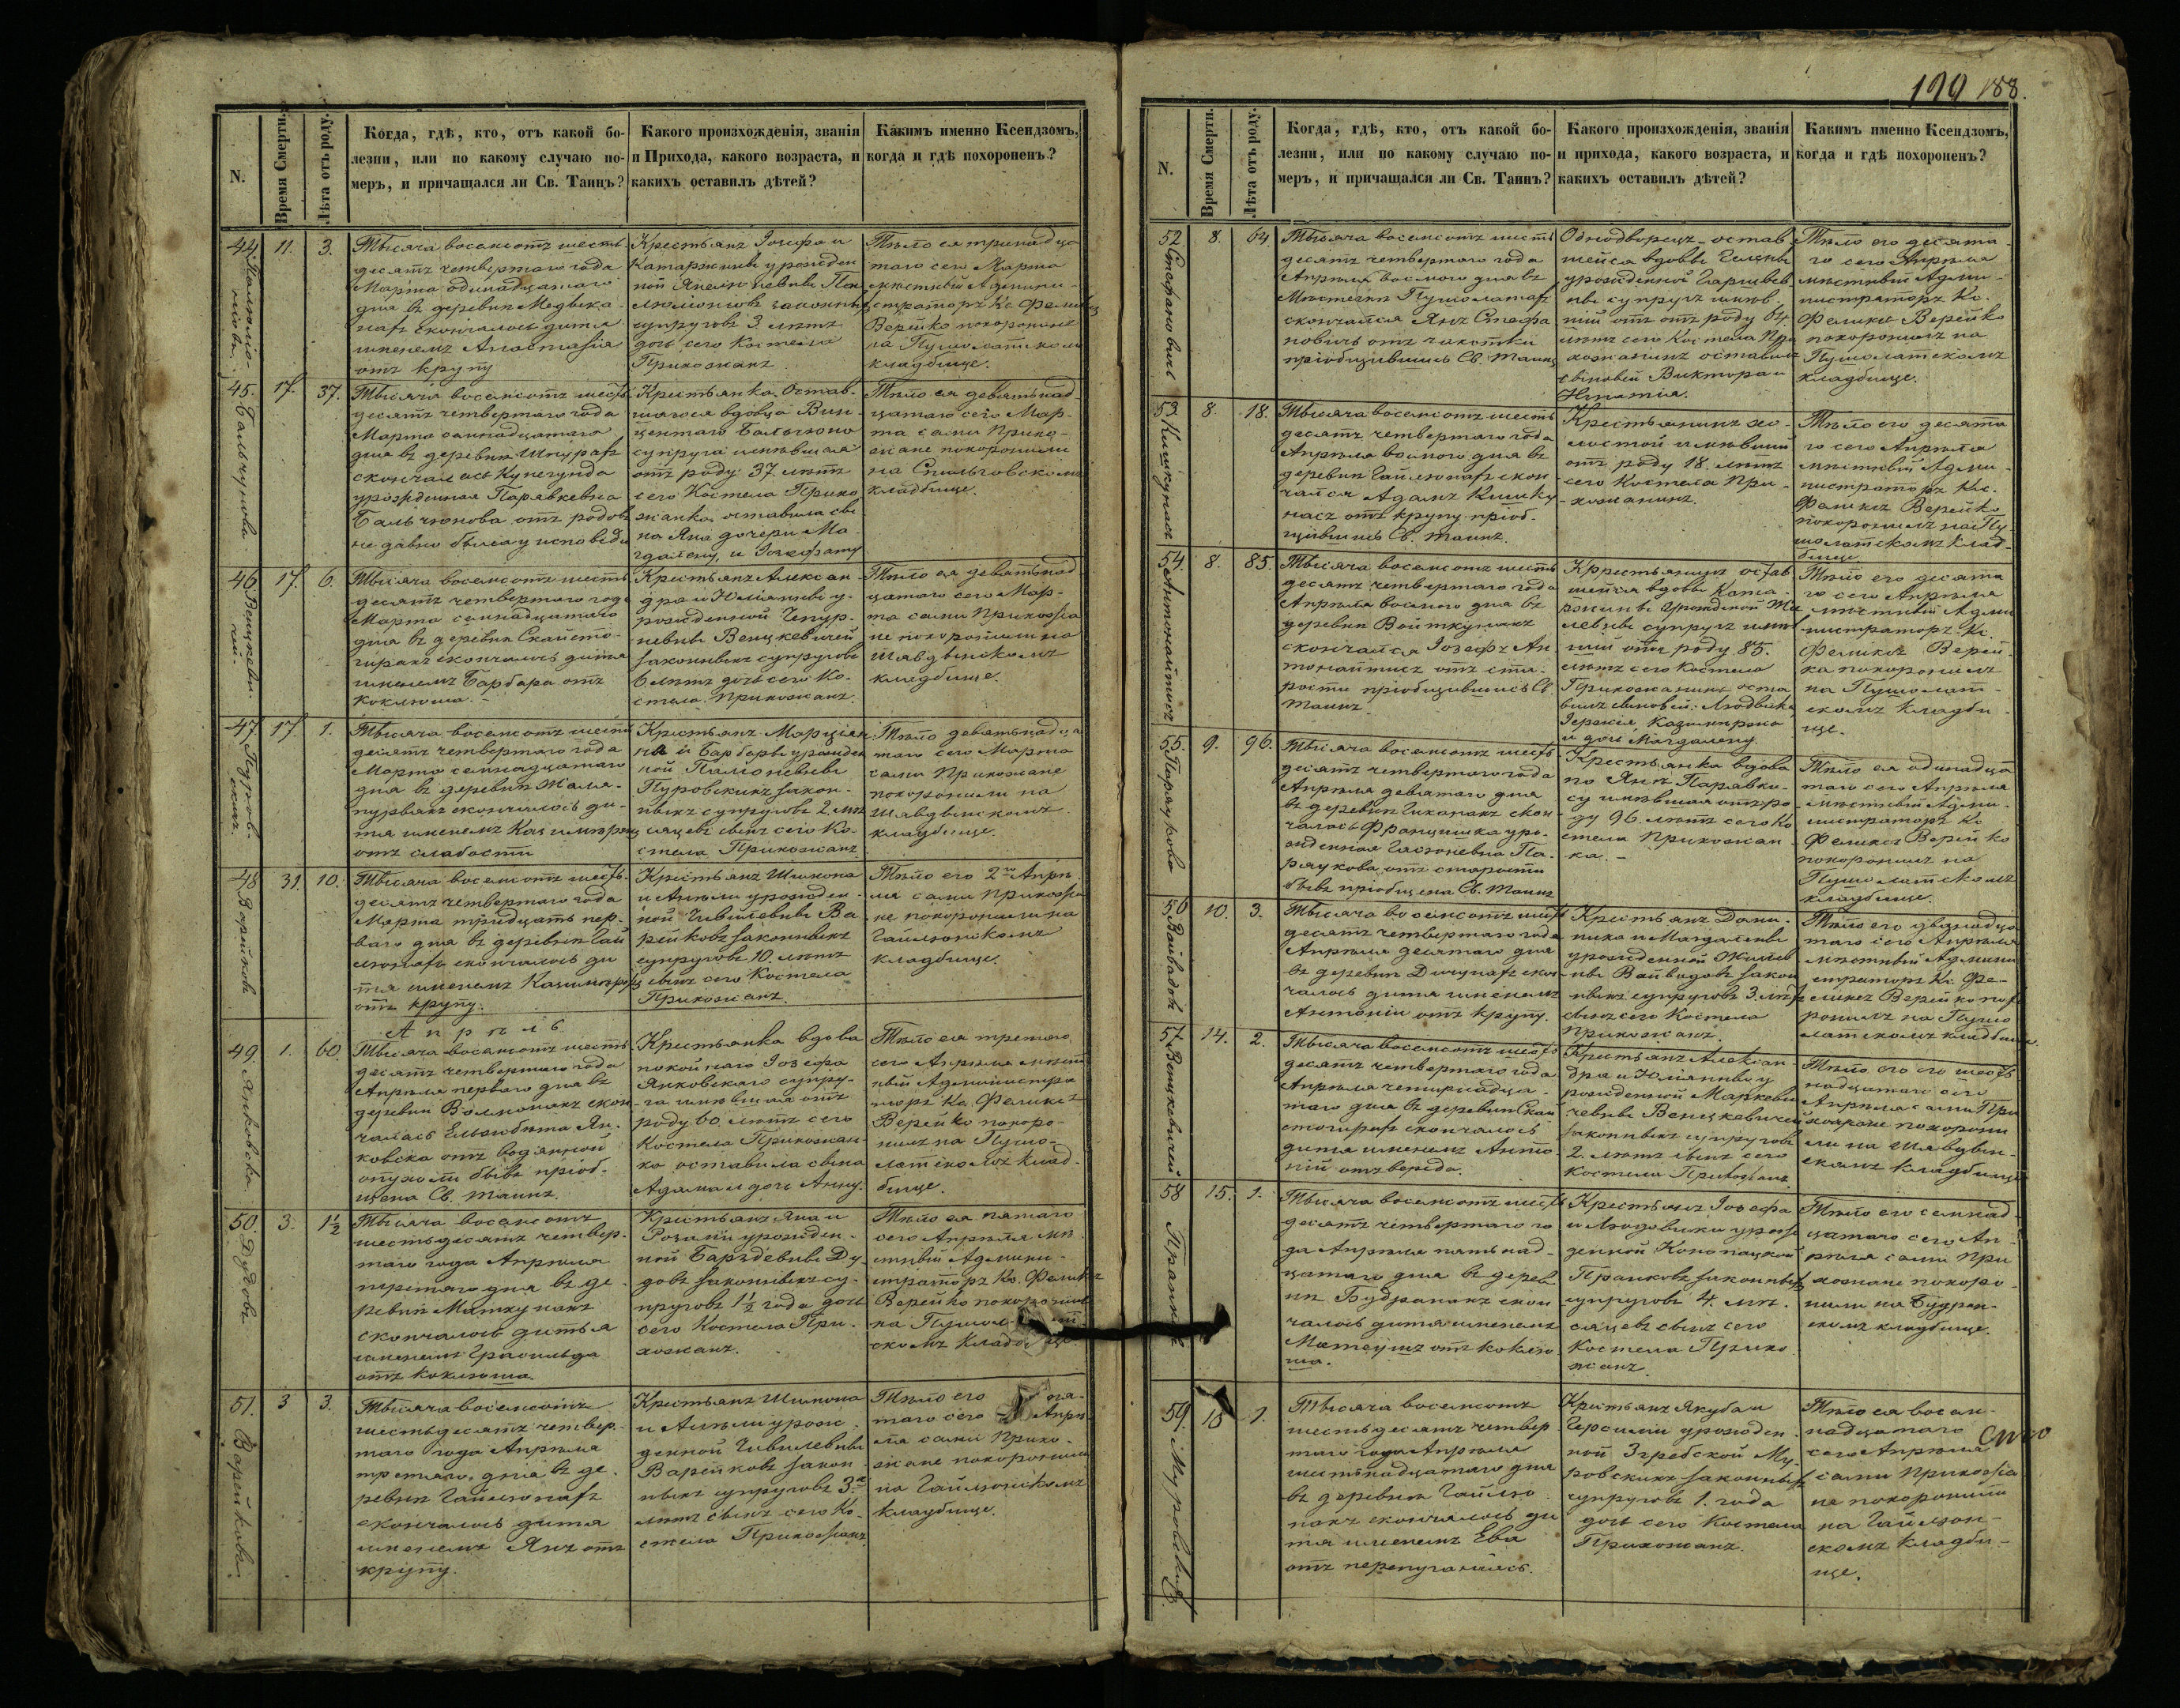 N.
Время Смерти.
Лѣта отъ роду.
Когда, гдѣ, кто, отъ какой бо-
лезни, или по какому случаю по-
меръ, и причащался ли Св. Таинъ?
Какого произхожденія, званія
и Прихода, какого возраста, и
какихъ оставилъ дѣтей?
Какимъ именно Ксендзомъ,
когда и гдѣ похороненъ?
44
11.
3.
Тысяча восемсотъ шесть
десятъ четвертаго года
Марта одинадцатаго
дня въ деревни
скончалось дитя
именемъ Анастасія
отъ крупу
Крестьянъ Іосифа и
Катаржины урожден
ной
законныхъ
супруговъ 3 лѣтъ
дочь сего Костела
Прихожанъ
Тѣло ея тринадца
таго сего Марта
мѣстный Админи-
страторъ Кс. Феликсъ
Верейко похоронилъ
на Пушолатскомъ
кладбище.
45.
17.
37.
Тысяча восемсотъ шесть
десятъ четвертаго года
Марта семнадцатаго
дня въ деревни
скончалась Кунегунда
урожденная Парявкевна
Бальчунова отъ родовъ
не давно была у исповеди
Крестьянка. Остав-
шагося вдовца Вин-
центаго
супруга имѣвшая
отъ роду 37 лѣтъ
сего Костела Прихо
жанка оставила сы
на Яна дочери Ма
гдалену, и Іозефату
Тѣло ея девятьнад
цатаго сего Мар-
та сами Прихо-
жане похоронили
на
кладбище.
46
17.
6.
Тысяча восемсотъ шесть
десятъ четвертаго года
Марта семнадцатаго
дня въ деревни Скайсто-
гирахъ скончалось дитя
именемъ Барбара отъ
коклюша. -
Крестьянъ Алексан
дра и Юліанны у-
рожденной
Венцкевичей
законныхъ супруговъ
6 лѣтъ дочь сего Ко-
стела Прихожанъ
Тѣло ея девятьнад
цатаго сего Мар-
та сами Прихожа
не похоронили на
Шавдвинскомъ
кладбище.
47.
17.
1.
Тысяча восемсотъ шесть
десятъ четвертаго года
Марта семнадцатаго
дня въ деревни
скончалось ди-
тя именемъ Казимиръ
отъ слабости
Крестьянъ Марціян
на и Барбары урожден
ной
Пуровскихъ закон-
ныхъ супруговъ 2 мѣ
сяцевъ сынъ сего Ко-
стела Прихожанъ
Тѣло девятьнадца
таго сего Марта
сами Прихожане
похоронили на
Шавдвинскомъ
кладбище.
48
31.
10.
Варейковъ
Тысяча восемсотъ шесть-
десятъ четвертаго года
Марта тридцать пер-
ваго дня въ деревни Гай
люнахъ скончалось ди
тя именемъ Казимиръ
отъ крупу.
Крестьянъ Шимона
и Анели урожден-
ной Чивилевны Ва
рейковъ законныхъ
супруговъ 10. лѣтъ
сынъ сего Костела
Прихожанъ.
Тѣло его 2го Апрѣ-
ля сами Прихожа
не похоронили на
Гайлюнскомъ
кладбище.
Апрѣль
49.
1.
60.
Янковска
Тысяча восемсотъ шесть
десятъ четвертаго года
Апрѣля перваго дня въ
деревни скон
чалась Ельжбета Ян-
ковска отъ водянной
опухоли бывъ пріоб-
щена Св. таинъ.
Крестьянка вдова
покойнаго Іозефа
Янковскаго супру-
га имѣвшая отъ
роду 60. лѣтъ сего
Костела Прихожан-
ка оставила сына
Адама и дочь Анну.
Тѣло ея третяго
сего Апрѣля мѣст
ный Администра
торъ Кс. Феликсъ
Верейко похоро-
нилъ на Пушо-
латскомъ клад-
бище.
50.
3.
1½
Дудовъ
Тысяча восемсотъ
шестьдесятъ четвер-
таго года Апрѣля
третяго дня въ де-
ревни Маткунахъ
скончалось дитья
именемъ
отъ коклюша
Крестьянъ Яна и
Розаліи урожден-
ной Ду-
довъ законныхъ су-
пруговъ 1½ года дочь
сего Костела При-
хожанъ.
Тѣло ея пятаго
сего Апрѣля мѣ
стный Админи-
страторъ Кс. Феликсъ
Верейко похоронилъ
на
скомъ кладбище
51.
3
3.
Варейковъ
Тысяча восемсотъ
шестьдесятъ четвер-
таго года Апрѣля
третяго дня въ де-
ревни Гайлюнахъ
скончалось дитя
именемъ Янъ отъ
крупу.
Крестьянъ Шимона
и Анели урож-
денной Чивилевны
Варейковъ закон-
ныхъ супруговъ 3хъ
лѣтъ сынъ сего Ко-
стела Прихожанъ
Тѣло его пя-
таго сего Апрѣ-
ля сами Прихо-
жане похоронили
на Гайлюнскомъ
кладбище.
199 188.
N.
Время Смерти.
Лѣта отъ роду.
Когда, гдѣ, кто, отъ какой бо-
лезни, или по какому случаю по-
меръ, и причащался ли Св. Таинъ?
Какого произхожденія, званія
и прихода, какого возраста, и
какихъ оставилъ дѣтей?
Какимъ именно Ксендзомъ,
когда и гдѣ похороненъ?
52.
8.
64.
Стефановичъ
Тысяча восемсотъ шесть
десятъ четвертаго года
Апрѣля восмого дня въ
Мѣстечки Пушолатахъ
скончался Янъ Стефа
новичъ отъ чахотки
пріобщившись Св. таинъ
Однодворецъ остав
шейся вдовы
урожденной
супругъ имѣв-
ній отъ отъ роду 64
лѣтъ сего Костела При
хожанинъ оставилъ
сыновей Виктора и
Игнатія.
Тѣло его десята-
го сего Апрѣля
мѣстный Адми-
нистраторъ Кс.
Феликсъ Верейко
похоронилъ на
Пушолатскомъ
кладбище.
53
8.
18.
Тысяча восемсотъ шесть
десятъ четвертаго года
Апрѣля восмого дня въ
деревни Гайлюнахъ скон
чался Адамъ Кишку
насъ отъ крупу пріоб-
щившись Св. таинъ.
Крестьянинъ хо-
лостой имѣвшій
отъ роду 18. лѣтъ
сего Костела При-
хожанинъ.
Тѣло его десята
го сего Апрѣля
мѣстный Адми-
нистраторъ Кс.
Феликсъ Верейко
похоронилъ на Пу
шолатскомъ клад-
бище
54.
8.
85.
Тысяча восемсотъ шесть
десятъ четвертаго года
Апрѣля восмого дня въ
деревни Войткунахъ
скончался Іозефъ Ан
тонайтисъ отъ ста-
рости пріобщившись Св.
таинъ
Крестьянинъ остав
шейся вдовы Ката-
ржины урожденой
супругъ имѣв
шій отъ роду 85.
лѣтъ сего Костела
Прихожанинъ оста
вилъ сыновей: Людвика
Казимира
и дочь Магдалену
Тѣло его десята
го сего Апрѣля
мѣстный Адми
нистраторъ Кс.
Феликсъ Верей-
ка похоронилъ
на Пушолат-
скомъ кладби-
ще.
55.
9.
96.
Тысяча восемсотъ шесть
десятъ четвертаго года
Апрѣля девятаго дня
въ деревни скон
чалась Францишка уро-
жденная Па-
ряукова отъ старости
бывъ пріобщена Св. таинъ
Крестьянка вдова
по Янѣ Парявко-
су имѣвшая отъ ро
ду 96. лѣтъ сего Ко
стела Прихожан
ка. -
Тѣло ея одинадца
таго сего Апрѣля
мѣстный Адми-
нистраторъ Кс
Феликсъ Верейко
похоронилъ на
Пушолатскомъ
кладбище.
56
10.
3.
Тысяча восемсотъ шесть
десятъ четвертаго года
Апрѣля десятаго дня
въ деревни скон
чалось дитя именемъ
Антоній отъ крупу.
Крестьянъ Доми-
ника и Магдалены
урожденной
Вайвадовъ закон
ныхъ супруговъ 3. лѣтъ
сынъ сего Костела
Прихожанъ.
Тѣло его двѣнадца
таго сего Апрѣля
мѣстный Админи
страторъ Кс. Фе-
ликсъ Верейко похо
ронилъ на Пушо
латскомъ кладбище
57
14.
2.
Венцкевичей
Тысяча восемсотъ шесть
десятъ четвертаго года
Апрѣля четырнадца
таго дня въ деревни Скай
стогирахъ скончалось
дитя именемъ Анто
ній отъ вереда.
Крестьянъ Алексан
дра и Юліянны у
рожденной Маркеви
чевны Венцкевичей
законныхъ супруговъ
2. лѣтъ сынъ сего
Костела Прихожанъ
Тѣло его шесть
надцатаго сего
Апрѣля сами При
хожане похорони
ли на Шавдвин-
скомъ кладбище
58
15.
1.
Тысяча восемсотъ шесть
десятъ четвертаго го
да Апрѣля пятьнад-
цатаго дня въ дерев
ни скон
чалось дитя именемъ
Матеушъ отъ коклю
ша.
Крестьянъ Іозефа
и Людовики урож
денной Конопацкой
Пранковъ законныхъ
супруговъ 4. мѣ-
сяцевъ сынъ сего
Костела Прихо
жанъ
Тѣло его семнад-
цатаго сего Ап-
рѣля сами При
хожане похоро-
нили на
скомъ кладбище.
59.
1.
Тысяча восемсотъ
шестьдесятъ четвер
таго года Апрѣля
шестьнадцатаго дня
въ деревни Гайлю
нахъ скончалось ди
тя именемъ Ева
отъ
Крестьянъ Якуба и
урожден-
ной Згребской Му-
ровскихъ законныхъ
супруговъ 1. года
дочь сего Костела
Прихожанъ.
Тѣло ея восем-
надцатаго
сего Апрѣля
сами Прихожа
не похоронили
на Гайлюн-
скомъ кладби-
ще.